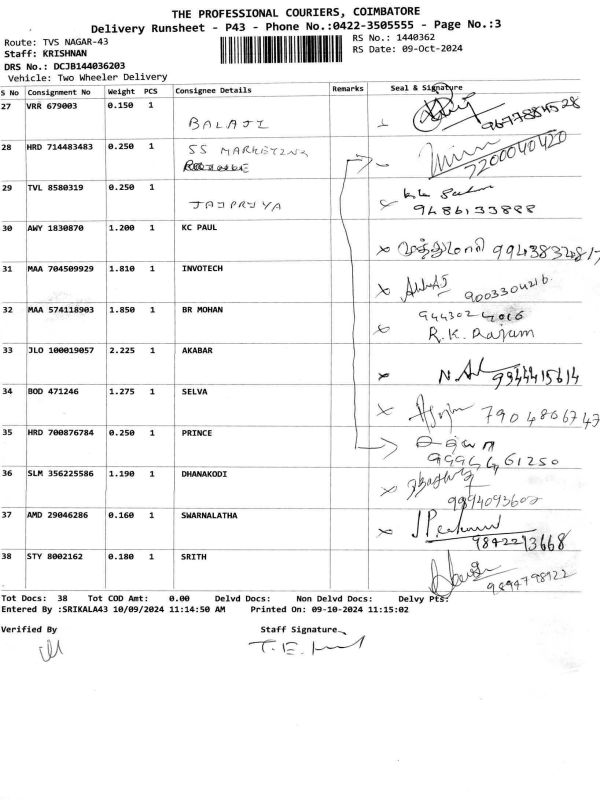 THE PROFESSIONAL COURIERS, COIMBATORE
Delivery Runsheet - P43 - Phone No.:0422-3505555 - Page No.:3
Route: TVS NAGAR-43
RS No.: 1440362
Staff: KRISHNAN
RS Date: 09-Oct-2024
DRS No.: DCJB144036203
Vehicle: Two Wheeler Delivery
S No Consignment No Weight PCS Consignee Details Remarks Seal & Signature
27 VRR 679003 0.150 1 BALAJI 9677884528
28 HRD 714483483 0.250 1 SS MARKETING 7200040420
29 TVL 8580319 0.250 1 JAIPRIYA 9486133888
30 AWY 1830870 1.200 1 KC PAUL முத்துமாரி 9943834817
31 MAA 704509929 1.810 1 INVOTECH 9003304216
32 MAA 574118903 1.850 1 BR MOHAN 944302 4016
R.K. Rajum
33 JLO 100019057 2.225 1 AKABAR 9944415614
34 BOD 471246 1.275 1 SELVA 7904806747
35 HRD 700876784 0.250 1 PRINCE
36 SLM 356225586 1.190 1 DHANAKODI 9894093602
37 AMD 29046286 0.160 1 SWARNALATHA 9842213668
38 STY 8002162 0.180 1 SRITH 9894798922
Tot Docs: 38 Tot COD Amt: 0.00 Delvd Docs: Non Delvd Docs: Delvy Pts:
Entered By :SRIKALA43 10/09/2024 11:14:50 AM Printed On: 09-10-2024 11:15:02
Verified By Staff Signature